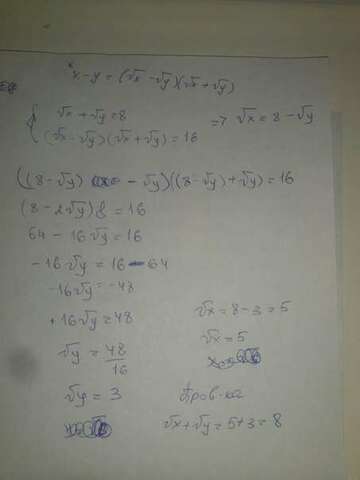 x-y = (√x - √y)(√x + √y)
{ √x + √y = 8 => √x = 8 - √y
(√x - √y)(√x + √y) = 16
((8 - √y) - √y)((8 - √y) + √y) = 16
(8 - 2√y) 8 = 16
64 - 16√y = 16
-16√y = 16 - 64
-16√y = -48
+16√y = 48
√y = 48/16
√y = 3
√x = 8 - 3 = 5
√x = 5
Пров-ка
√x + √y = 5 + 3 = 8